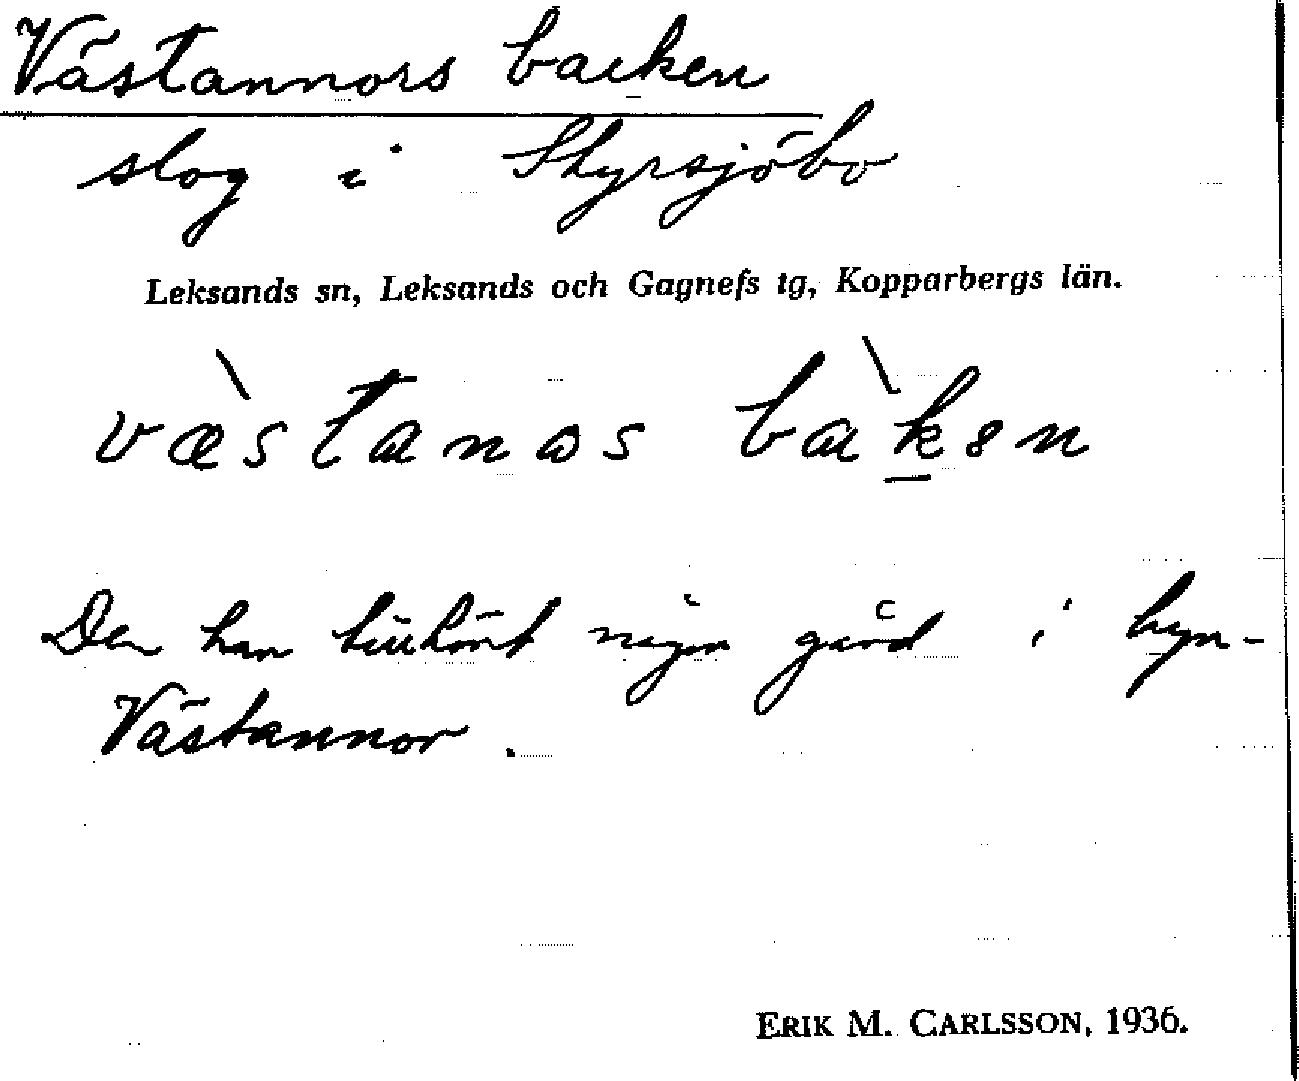 Västannors backen
slog i Styrsjöbo
Leksands sn, Leksands och Gagnefs tg, Kopparbergs län.
væ̀stanɷs bàk̲ən
Den har tillhört någon gård i byn-
Västannor.
ERIK M. CARLSSON, 1936.